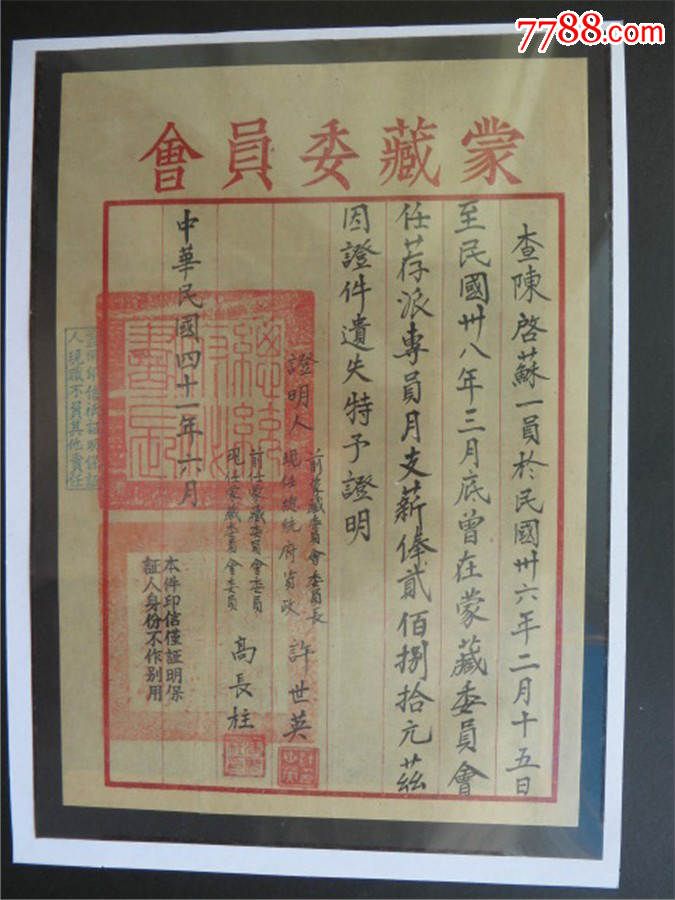 7788.com
蒙藏委員會
查陳啓蘇一員於民國卅六年二月十五日
至民國卅八年三月底曾在蒙藏委員會
任荐派專員月支薪俸貳佰捌拾元茲
因證件遺失特予證明
證明人
前蒙藏委員會委員長
現任總統府資政
許世英
前任蒙藏委員會委員
現任蒙藏委員會委員
高長柱
中華民國四十一年六月
本件印信僅証明保
証人身份不作别用
人現職不負其他責任